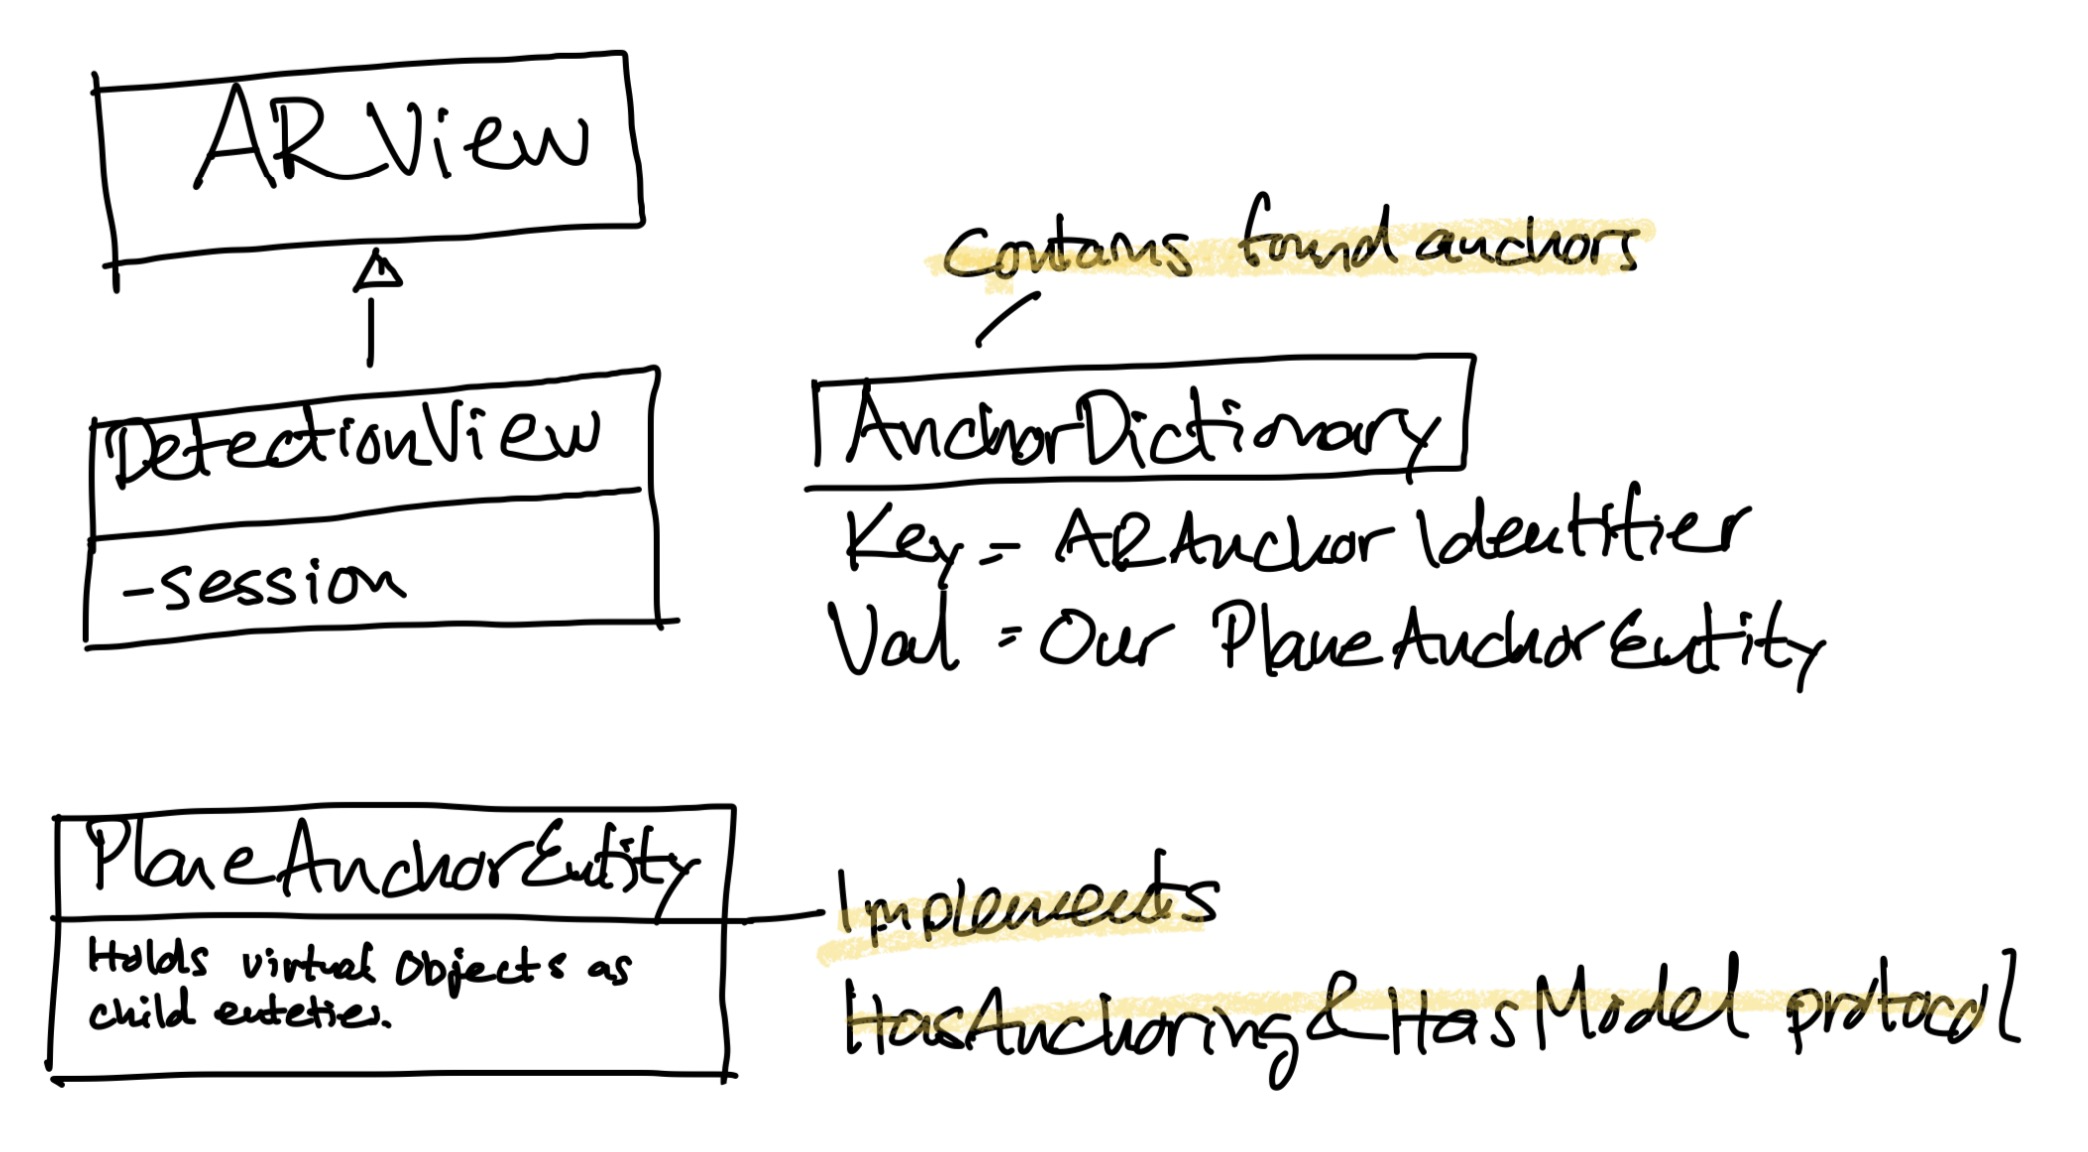 ARView
DetectionView
-session
Contains found anchors
AnchorDictionary
Key = ARAnchor Identifier
Val = Our PlaneAnchorEntity
PlaneAnchorEntity
Holds virtual objects as
child enteties.
Implements
HasAnchoring & HasModel protocol